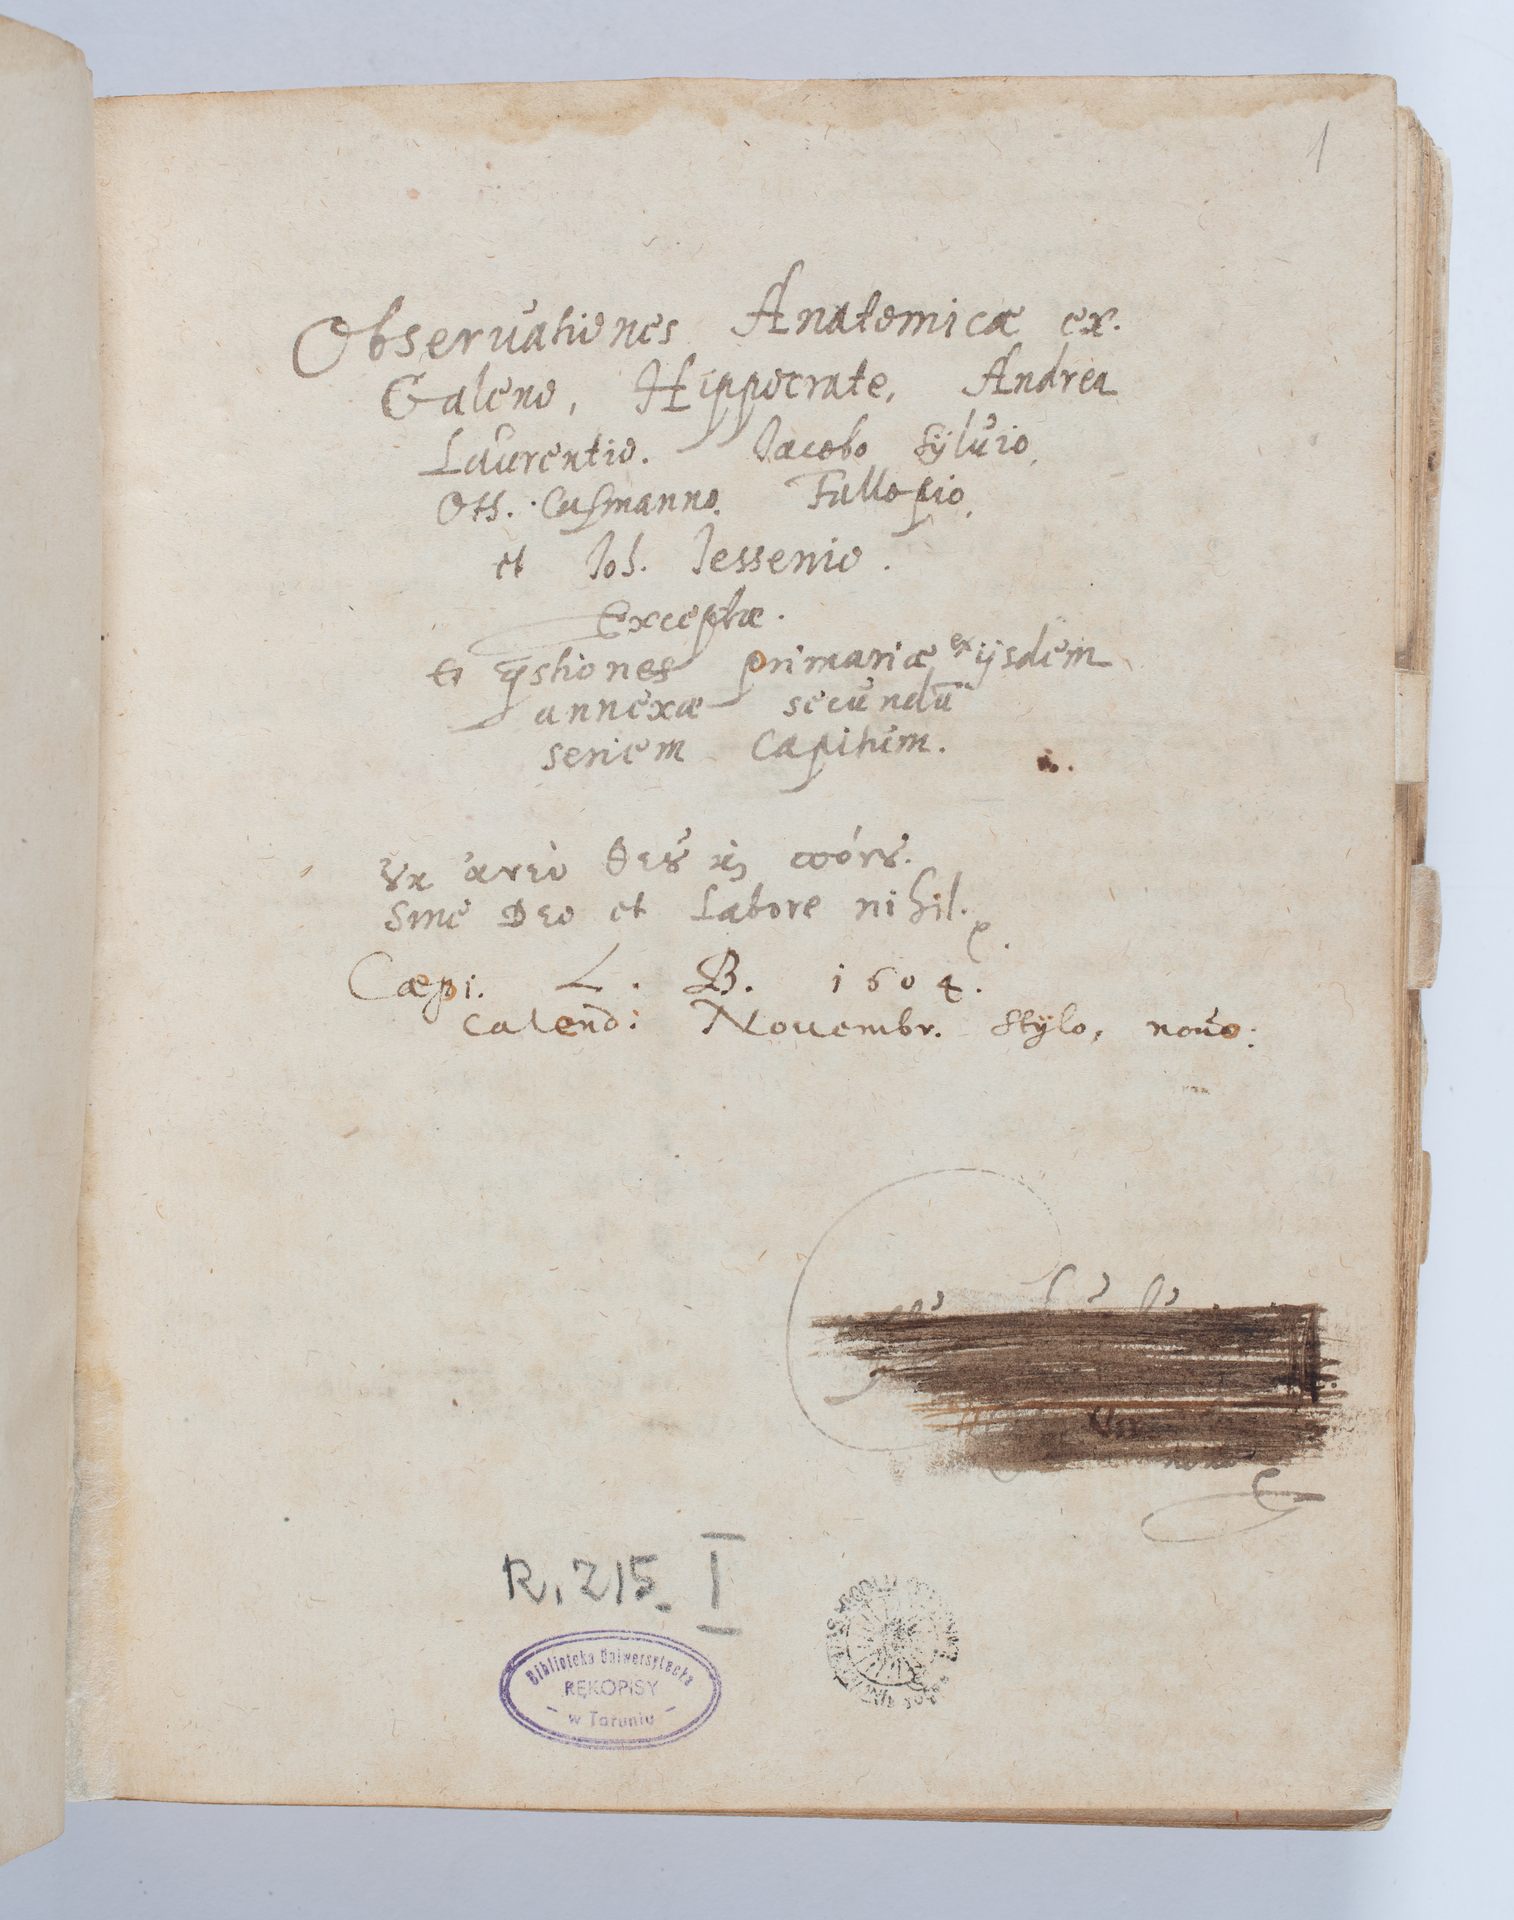 1
Observationes Anatomicæ ex.
Galeno, Hippocrate, Andrea
Laurentio. Jacobo Sÿlvio,
Oth. Casmanno. Fallopio,
et Joh. Jessenio.
Exceptæ.
et qstiones primariæ ex ijsdem
annexæ secundū
seriem Capitum.
ȣκ ἀνεὺ θεȣ ϗ πόνȣ.
Sine Deo et Labore nihil.
Cæpi. L. B. 1604.
Calend: Novembr. Stÿlo, novo:
R. 215. I
Biblioteka Uniwersytecka
RĘKOPISY
w Toruniu